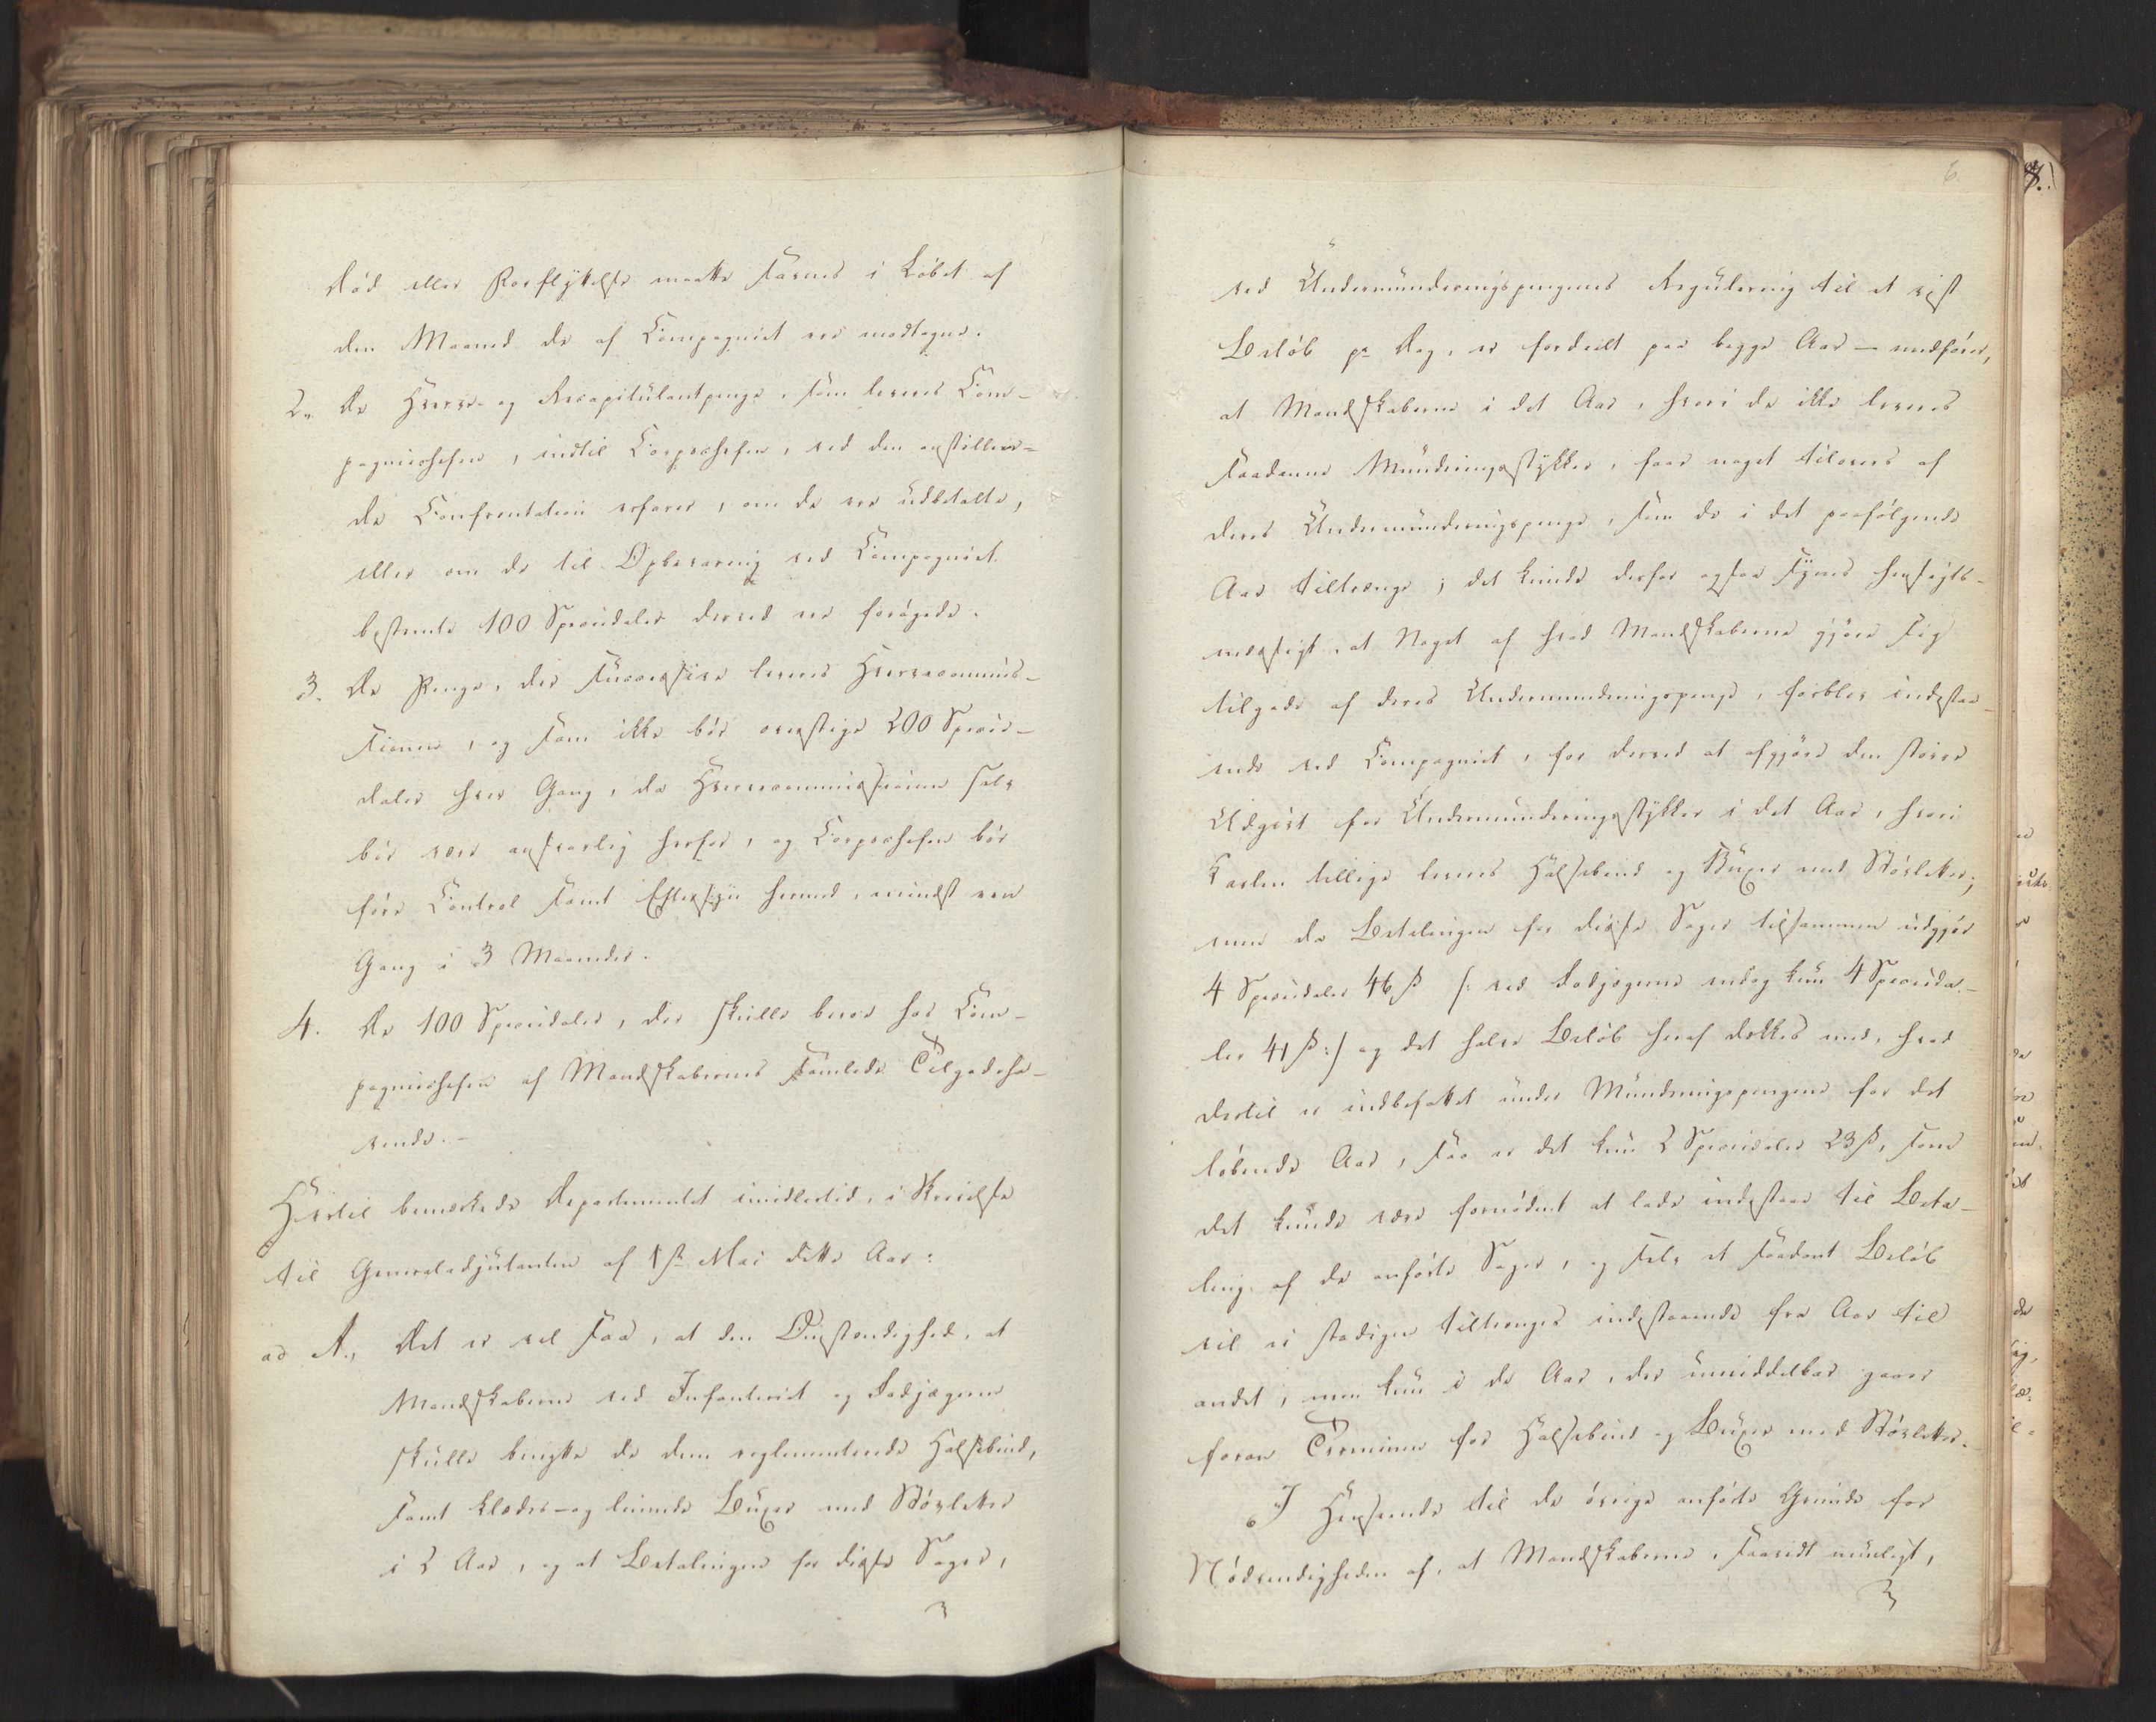 Död eller Forflyttelse maatte savnes i Löbet af
den Maaned de af Compagniet ere modtagne.
2. De Hverve- og Recapitulantpenge, som leveres Com-
pagniechefen, indtil Corpschefen, ved den anstillen-
de Confrontation erfarer, om de ere udbetalte,
eller om de til Opbevaring ved Compagniet
bestemte 100 Speciedaler derved ere forögede.
3. De Penge, der successive leveres Hvervecommis-
sionen, og som ikke bör overstige 200 Specie-
daler hver Gang, da Hvervecommissionen selv
bör være ansvarlig herfor, og Corpschefen bör
före Control samt Eftersyn hermed, mindst een
Gang i 3 Maaneder.
4. De 100 Speciedaler, der skulle beroe hos Com-
pagniechefen af Mandskabernes samlede Tilgodeha-
vende.-
Hertil bemærkede Departementet imidlertid, i Skrivelse
til Generaladjutanten af 1ste Mai dette Aar:
ad A., Det er vel saa, at den Omstændighed, at
Mandskaberne ved Infanteriet og Landjægerne
skulle benytte de dem reglementerede Halsebind,
samt klædes- og linnede Buxer med Stövletter
i 2 Aar, og at Betalingen for disse Sager,
6.
ved Undermunderingspengenes Regulering til et vist
Belöb pr Dag, er fordeelt paa begge Aar — medförer,
at Mandskaberne i det Aar, hvori de ikke leveres
saadanne Munderingsstykker, faae noget tilovers af
deres Undermunderingspenge, som de i det paafölgende
Aar tiltrænge; det kunde derfor ogsaa synes hensigts-
mæssigt, at Noget af hvad Mandskaberne gjöre sig
tilgode af deres Undermunderingspenge, forblev indestaa-
ende ved Compagniet, for derved at afgjöre den större
Udgivt for Undermunderingsstykker i det Aar, hvori
Karlen tillige leveres Halsebind og Buxer med Stövletter;
men da Betalingen for disse Sager tilsammen udgjör
4 Speciedaler 46 ß /: ved Landjægerne endog kun 4 Specieda-
ler 41 ß :/ og det halve Belöb heraf dækkes med, hvad
dertil er indbefattet under Munderingspengene for det
löbende Aar, saa er det kun 2 Speciedaler 23 ß, som
det kunde være fornödent at lade indestaae til Beta-
ling af de anförte Sager, og selv et saadant Belöb
vil ei stedigen tiltrænges indestaaende fra Aar til
andet, men kun i de Aar, der umiddelbar gaaer
foran Terminen for Halsebind og Buxer med Stövletter.
I Henseende til de övrige anförte Grunde for
Nödvendigheden af, at Mandskaberne, saavidt mueligt,